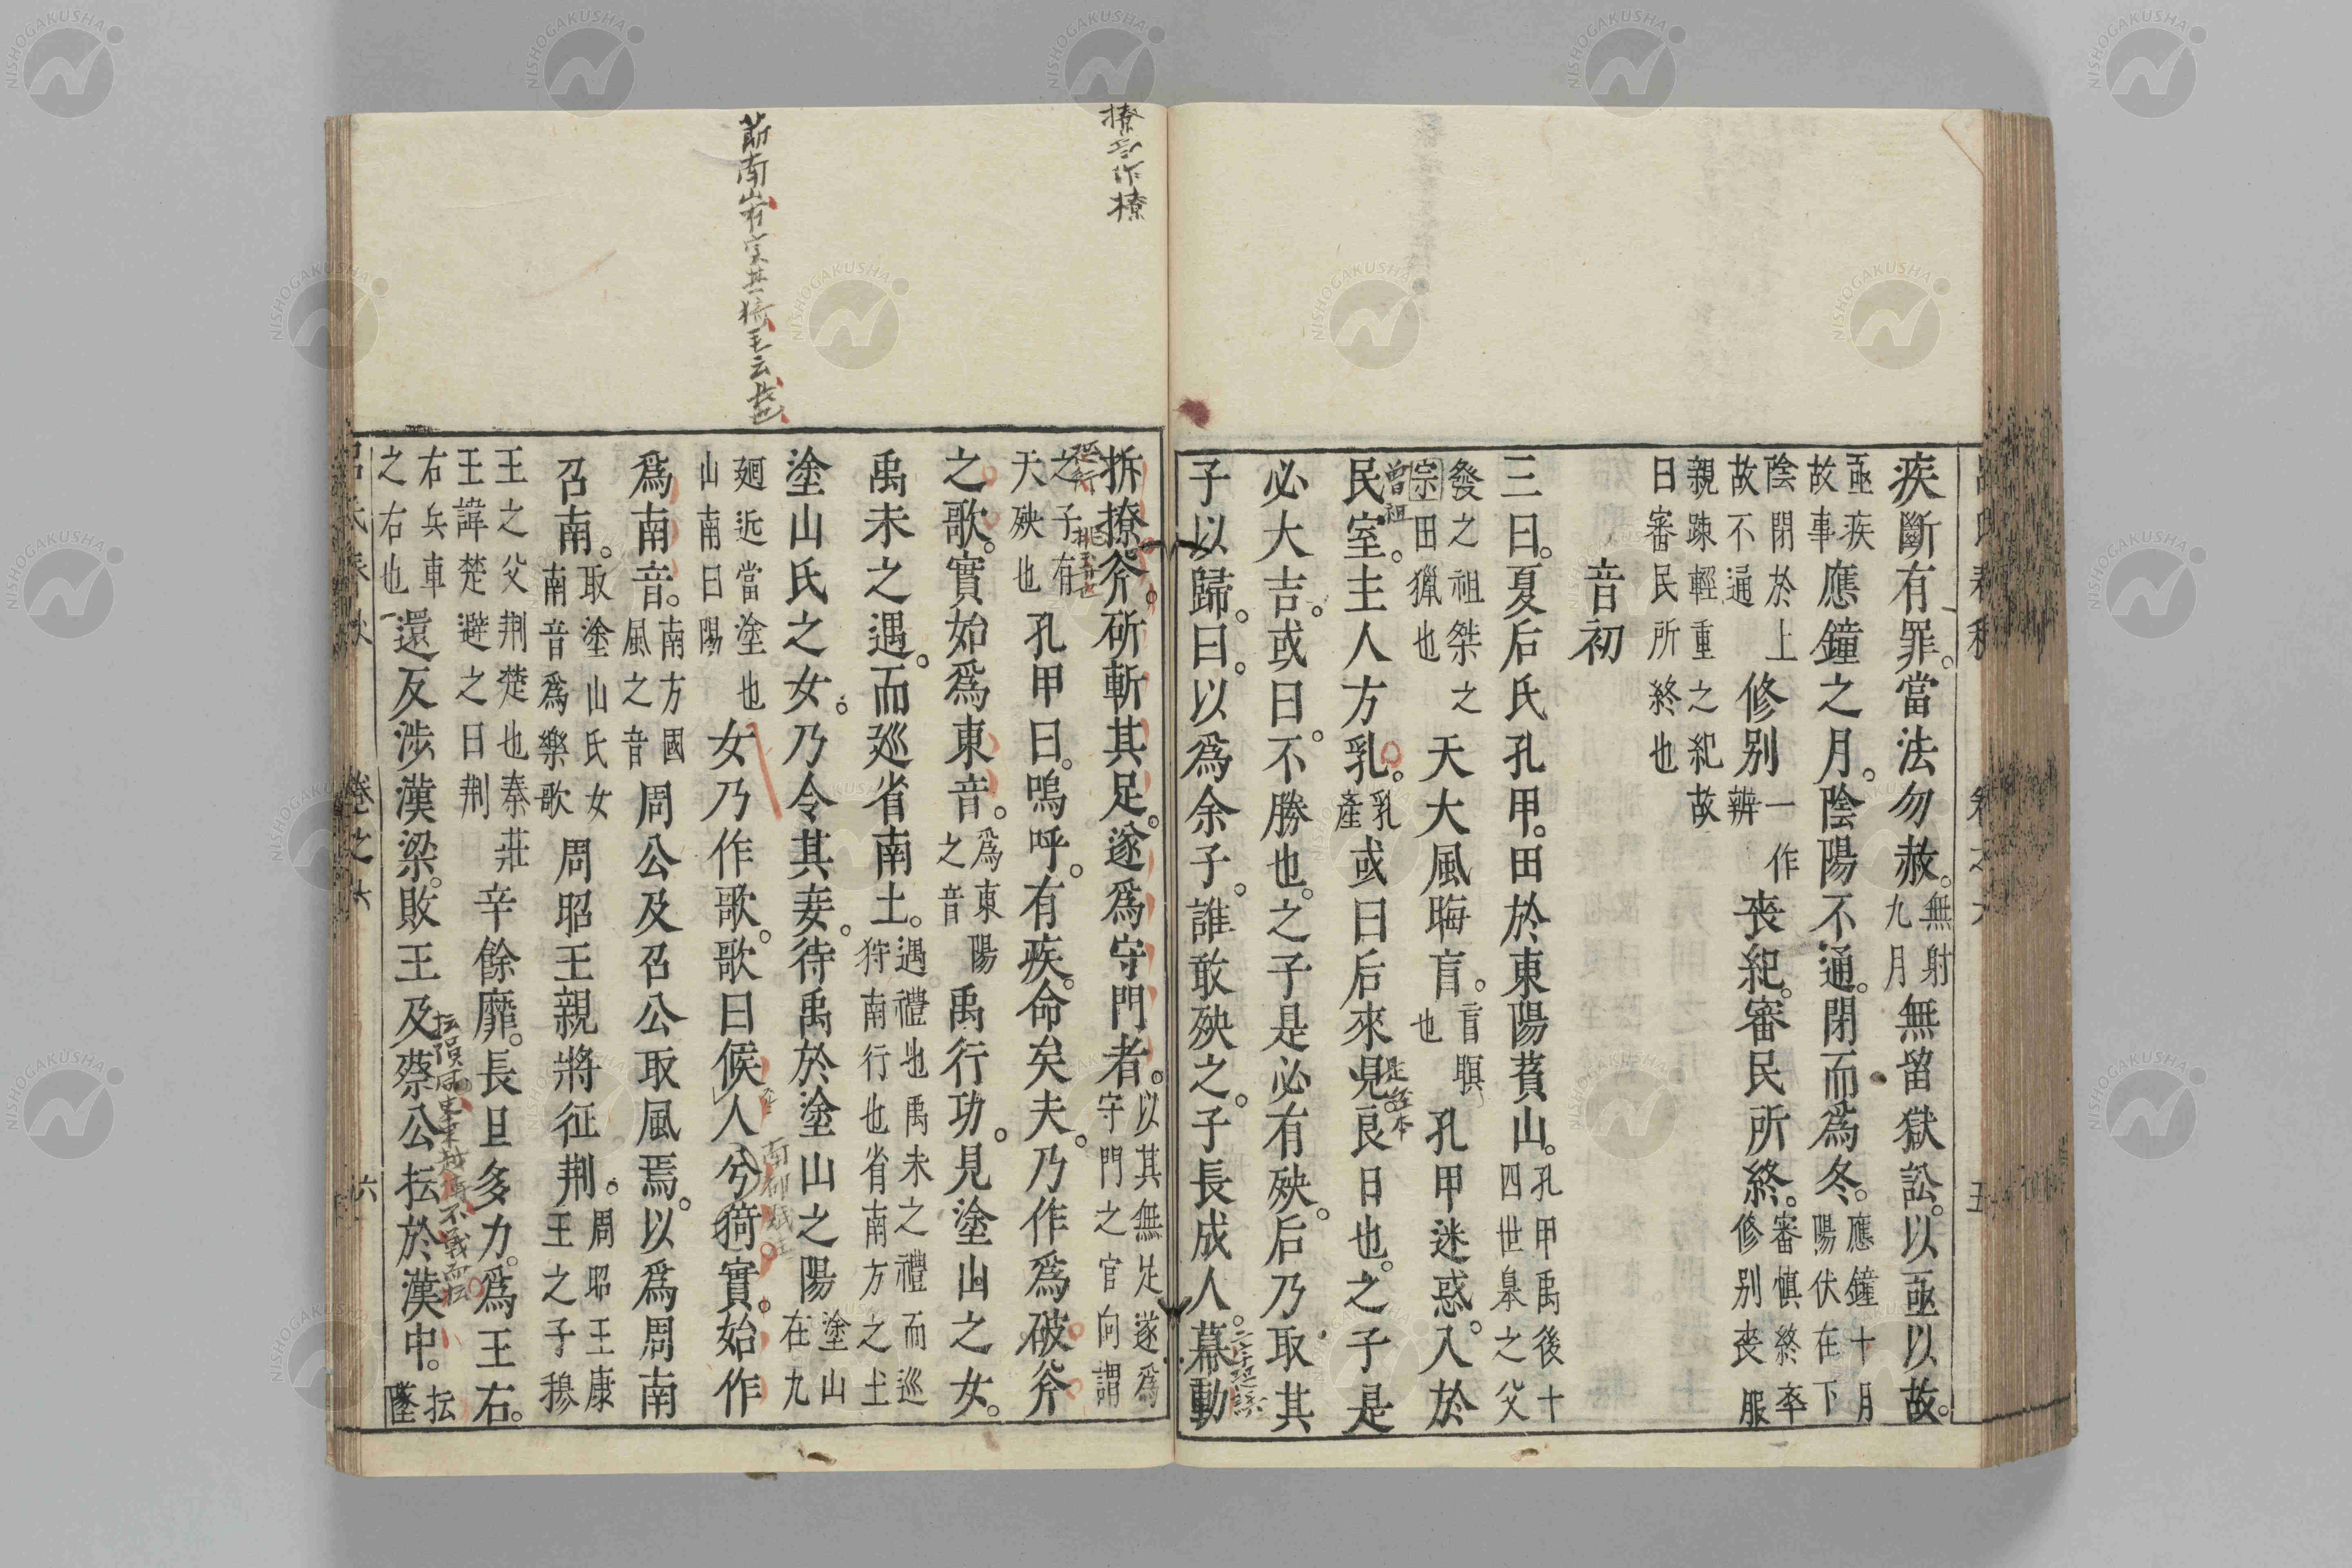 疾斷有罪。當法勿赦。無射九月無留獄訟。以亟以故。
亟疾故事應鐘之月。陰陽不通。閉而爲冬。應鐘十月陽伏在下
陰閉於上故不通修別一作辨喪紀。審民所終。審慎終卒修別喪服
親踈輕重之紀故日審民所終也
音初
三曰。夏后氏孔甲。田於東陽萯山。孔甲禹後十四世皋之父
發之祖桀之宗田獵也天大風晦盲。盲瞑也孔甲迷惑。入於
民室。主人方乳。乳產或曰后來。見良日也。之子是
必大吉。或曰。不勝也。之子是必有殃。后乃取其
子以歸。曰。以爲余子。誰敢殃之。子長成人。幕動
拆撩。斧斫斬其足。遂爲守門者。以其無足遂爲守門之官向謂
之子有天殃也孔甲曰。嗚呼。有疾。命矣夫。乃作爲破斧
之歌。實始爲東音。爲東陽之音禹行功。見塗山之女。
禹未之遇。而廵省南土。遇禮也禹未之禮而巡狩南行也省南方之土
塗山氏之女。乃令其妾。待禹於塗山之陽塗山在九
廻近當塗也山南曰陽女乃作歌。歌曰候人兮猗實。始作
爲南音。南方國風之音周公及召公取風焉。以爲周南
召南。取塗山氏女南音爲樂歌周昭王親將征荆。周昭王康王之子穆
王之父荆楚也秦莊王諱楚避之曰荆辛餘靡。長且多力。爲王右。
右兵車之右也還反涉漢梁。敗王及蔡公抎於漢中。抎墜
呂氏春秋 卷之六 六
曾祖
撩
南山有實其猗毛云長也